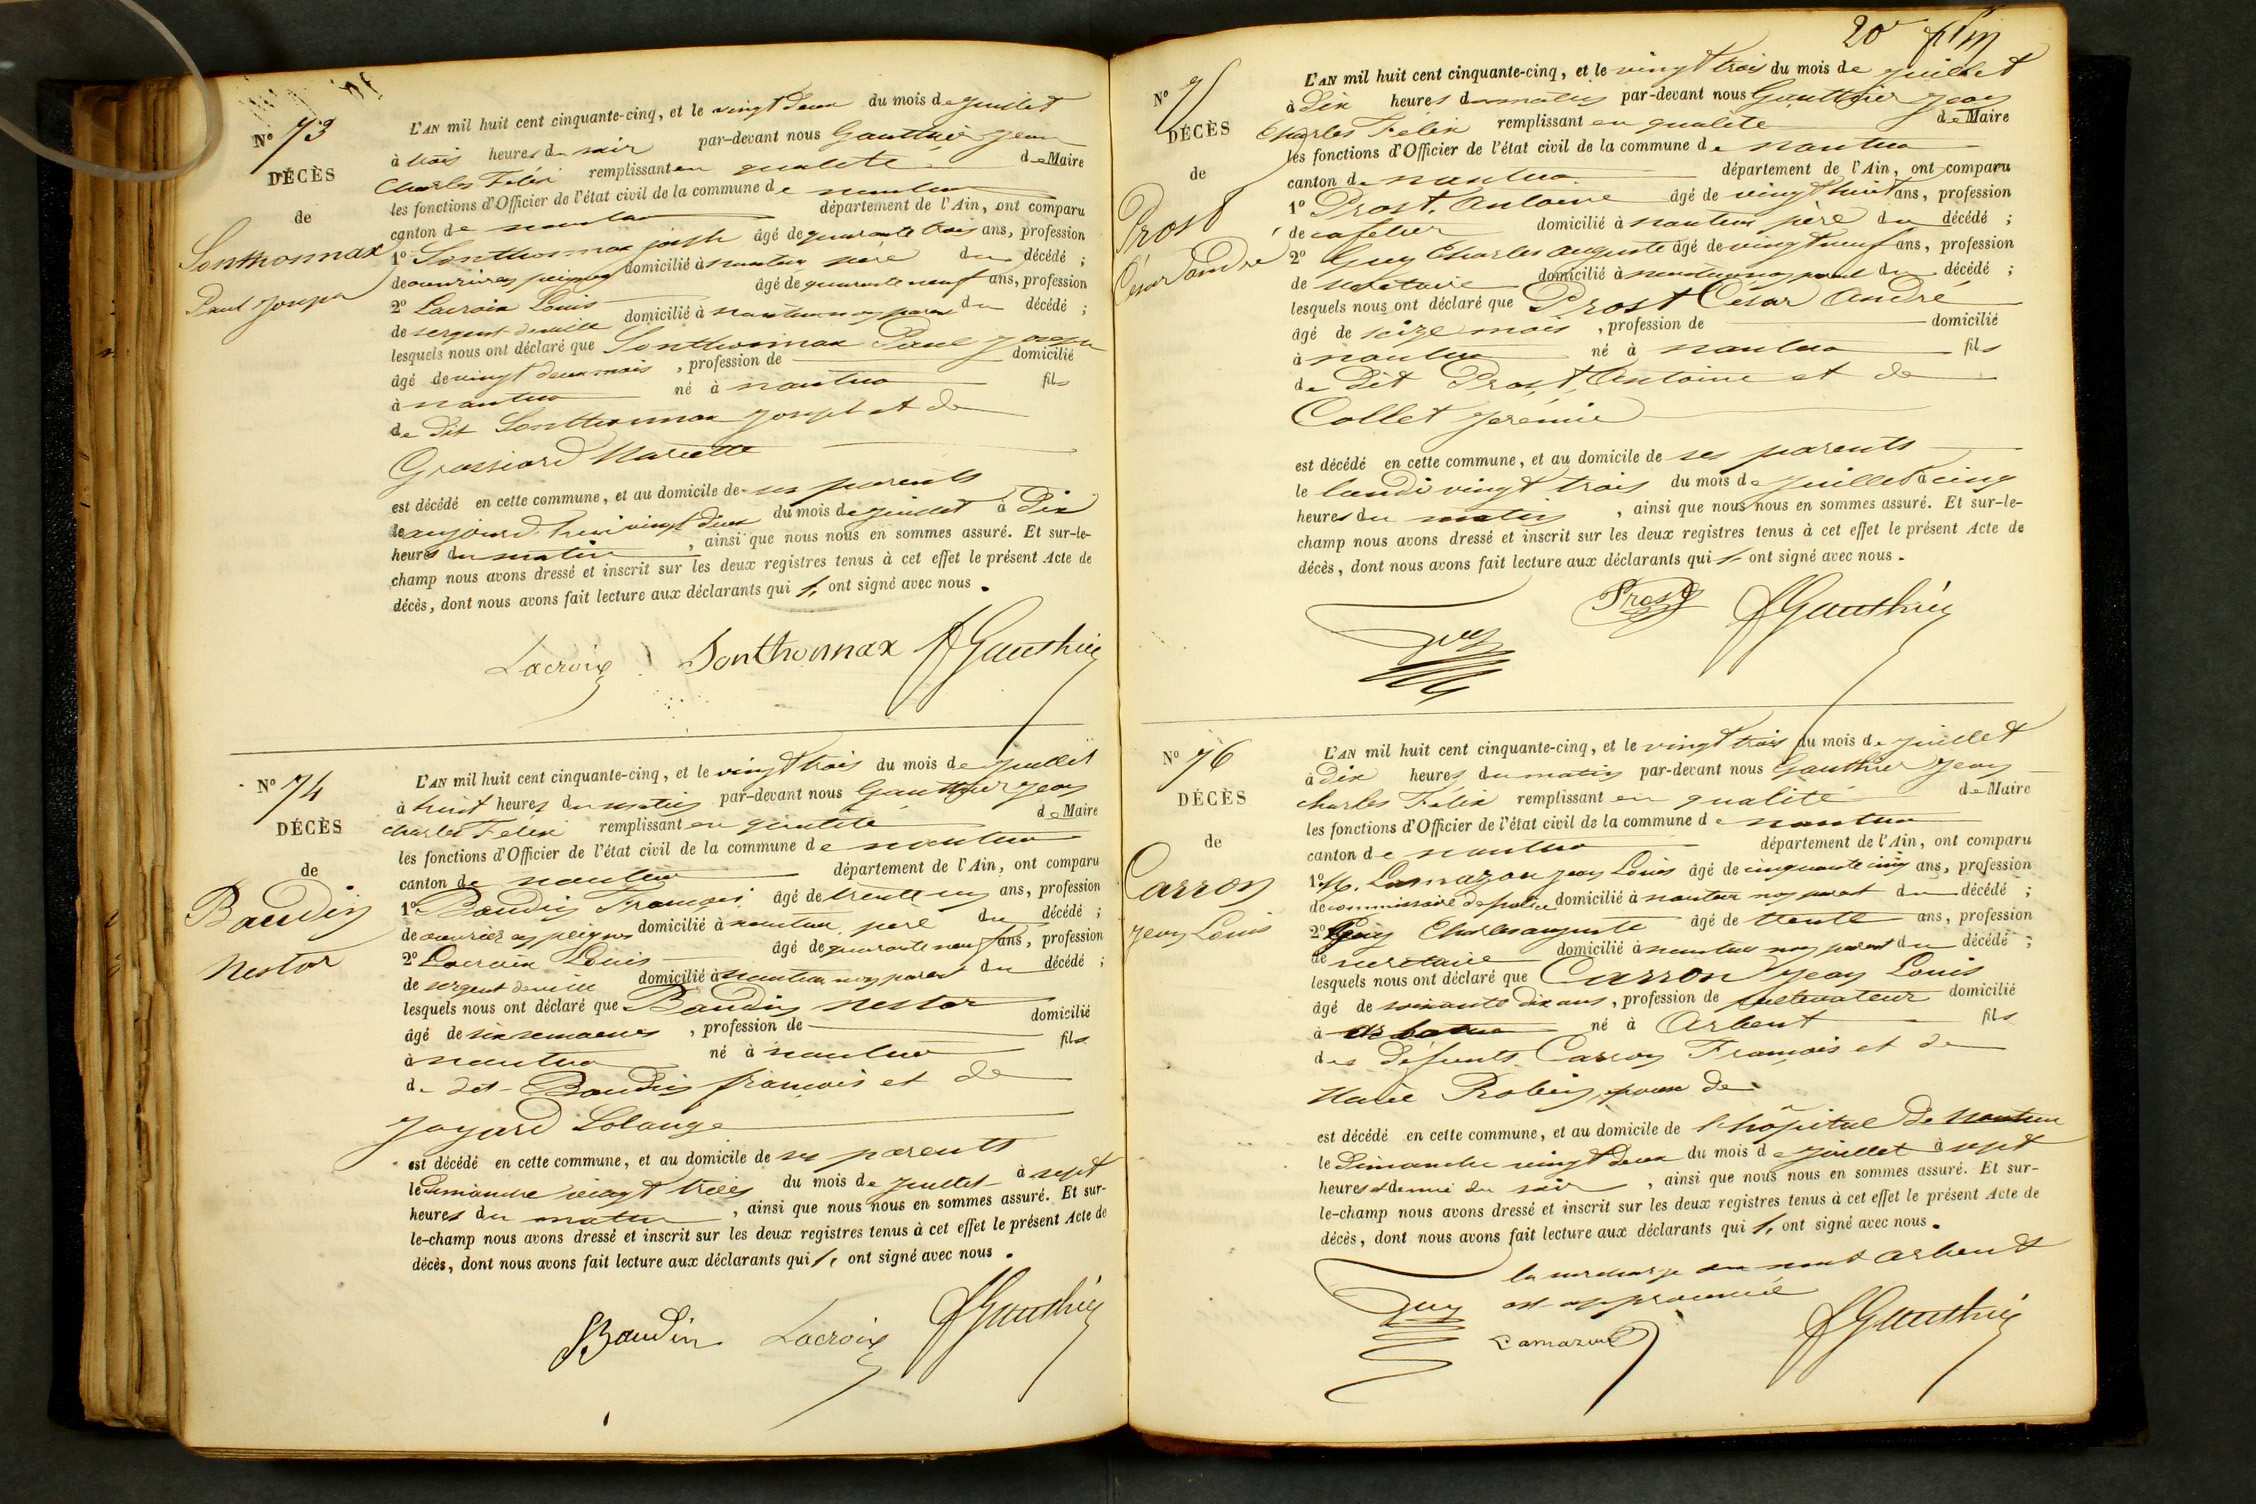 N° 73
DÉCÈS
de
Sonthonnax
Paul Joseph
L'AN mil huit cent cinquante-cinq, et le vingt deux du mois de juillet
à trois heures du soir par-devant nous Gauthier Jean
Charles Félix remplissant en qualité de Maire
les fonctions d'Officier de l'état civil de la commune de nantua
canton de nantua département de l'Ain, ont comparu
1° Sonthonnax joseph âgé de quarante trois ans, profession
de ouvrier en peignes domicilié à nantua père du décédé ;
2° Lacroix Louis âgé de quarante neuf ans, profession
de sergent de ville domicilié à nantua non parent du décédé ;
lesquels nous ont déclaré que Sonthonnax Paul Joseph
âgé de vingt deux mois , profession de domicilié
à nantua né à nantua fils
de dit Sonthonnax Joseph et de
Grossiord Mariette
est décédé en cette commune, et au domicile de ses parents
le aujourd'hui vingt deux du mois de juillet à dix
heures du matin , ainsi que nous nous en sommes assuré. Et sur-le-
champ nous avons dressé et inscrit sur les deux registres tenus à cet effet le présent Acte de
décès, dont nous avons fait lecture aux déclarants qui ont signé avec nous.
Lacroix Sonthonnax Gauthier
N° 74
DÉCÈS
de
Baudin
Nestor
L'AN mil huit cent cinquante-cinq, et le vingt trois du mois de juillet
à huit heures du matin par-devant nous Gauthier Jean
charles Félix remplissant en qualité de Maire
les fonctions d'Officier de l'état civil de la commune de nantua
canton de nantua département de l'Ain, ont comparu
1° Baudin François âgé de trente un ans, profession
de ouvrier en peignes domicilié à nantua père du décédé ;
2° Lacroix Louis âgé de quarante neuf ans, profession
de sergent de ville domicilié à nantua non parent du décédé ;
lesquels nous ont déclaré que Baudin Nestor
âgé de six semaines , profession de domicilié
à nantua né à nantua fils
de dit Baudin françois et de
Joyard Solange
est décédé en cette commune, et au domicile de ses parents
le dimanche vingt trois du mois de juillet à sept
heures du matin , ainsi que nous nous en sommes assuré. Et sur-
le-champ nous avons dressé et inscrit sur les deux registres tenus à cet effet le présent Acte de
décès, dont nous avons fait lecture aux déclarants qui ont signé avec nous.
Baudin Lacroix Gauthier
20
N°
DÉCÈS
de
Prost
César andré
L'AN mil huit cent cinquante-cinq, et le vingt trois du mois de juillet
à Dix heures du matin par-devant nous Gauthier Jean
Charles Félix remplissant en qualité de Maire
les fonctions d'Officier de l'état civil de la commune de nantua
canton de nantua département de l'Ain, ont comparu
1° Prost, Antoine âgé de vingt huit ans, profession
de cafetier domicilié à nantua père du décédé ;
2° Guy Charles auguste âgé de vingt neuf ans, profession
de secrétaire domicilié à nantua non parent du décédé ;
lesquels nous ont déclaré que Prost César André
âgé de seize mois , profession de domicilié
à nantua né à nantua fils
de Dit Prost, Antoine et de
Collet Jérémie
est décédé en cette commune, et au domicile de ses parents
le lundi vingt trois du mois de juillet à cinq
heures du matin , ainsi que nous nous en sommes assuré. Et sur-le-
champ nous avons dressé et inscrit sur les deux registres tenus à cet effet le présent Acte de
décès, dont nous avons fait lecture aux déclarants qui ont signé avec nous.
Guy Prost Gauthier
N° 76
DÉCÈS
de
Carron
Jean Louis
L'AN mil huit cent cinquante-cinq, et le vingt trois du mois de juillet
à dix heures du matin par-devant nous Gauthier Jean
charles Félix remplissant en qualité de Maire
les fonctions d'Officier de l'état civil de la commune de nantua
canton de nantua département de l'Ain, ont comparu
1° M. Lamazou Jean Louis âgé de cinquante cinq ans, profession
de commissaire de police domicilié à nantua non parent du décédé ;
2° Guy Charles auguste âgé de trente ans, profession
de secrétaire domicilié à nantua non parent du décédé ;
lesquels nous ont déclaré que Carron Jean Louis
âgé de soixante dix ans, profession de cultivateur domicilié
à né à Arbent fils
des défunts Carron François et de
Marie Robin, époux de
est décédé en cette commune, et au domicile de l'hôpital de Nantua
le Dimanche vingt deux du mois de juillet à sept
heures et demie du soir , ainsi que nous nous en sommes assuré. Et sur-
le-champ nous avons dressé et inscrit sur les deux registres tenus à cet effet le présent Acte de
décès, dont nous avons fait lecture aux déclarants qui ont signé avec nous.
la surcharge du mot arbent
est approuvée
Guy Lamazou Gauthier